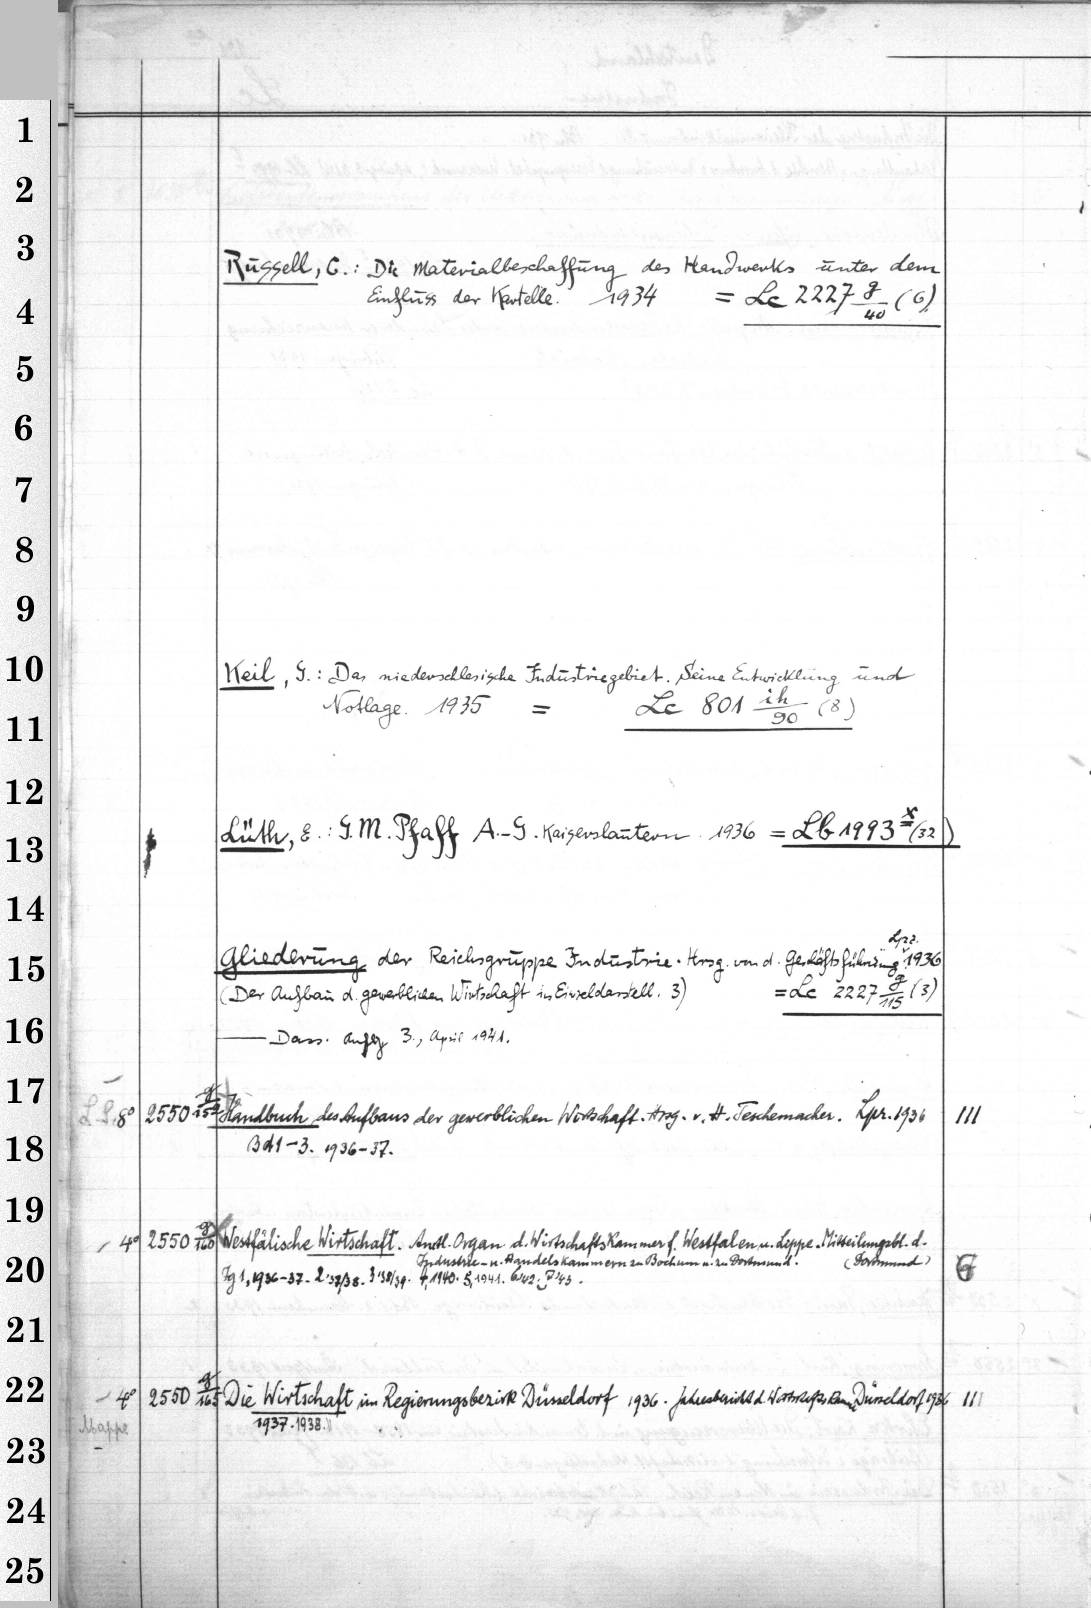 1
2
3
Russell, C.: Die Materialbeschaffung des Handwerks unter dem
4
Einfluss der Kartelle. 1934 = Lc 2227 g/40 (6)
5
6
7
8
9
10
Keil, G.: Das niederschlesische Industriegebiet. Seine Entwicklung und
11
Notlage. 1935 = Lc 801 ih/90 (8)
12
13
Lüth, E.: G.M. Pfaff A.-G. Kaiserslautern 1936 = Lb 1993 x (32)
14
15
Gliederung der Reichsgruppe Industrie. Hrsg. von d. Geschäftsführung Lpz. 1936
(Der Aufbau d. gewerblichen Wirtschaft in Einzeldarstell. 3) = Lc 2227 g/115 (3)
16
— Dass. Ausg. 3., April 1941.
17
L.S. 8° 2550 g/152 Handbuch des Aufbaus der gewerblichen Wirtschaft. Hrsg. v. H. Teschemacher. Lpz. 1936 III
18
Bd 1–3. 1936–37.
19
4° 2550 g/160 Westfälische Wirtschaft. Amtl. Organ d. Wirtschaftskammer f. Westfalen u. Lippe. Mitteilungsbl. d.
Industrie- u. Handelskammern zu Bochum u. zu Dortmund. (Dortmund)
20
Jg 1, 1936–37. 2 '37/38. 3 '38/39. 4, 1940. 5, 1941. 6 '42. 7 '43.
21
22
4° 2550 g/165 Die Wirtschaft im Regierungsbezirk Düsseldorf 1936. Jahresbericht d. Wirtschaftskam. Düsseldorf 1936 III
Mappe 1937. 1938. II
23
24
25